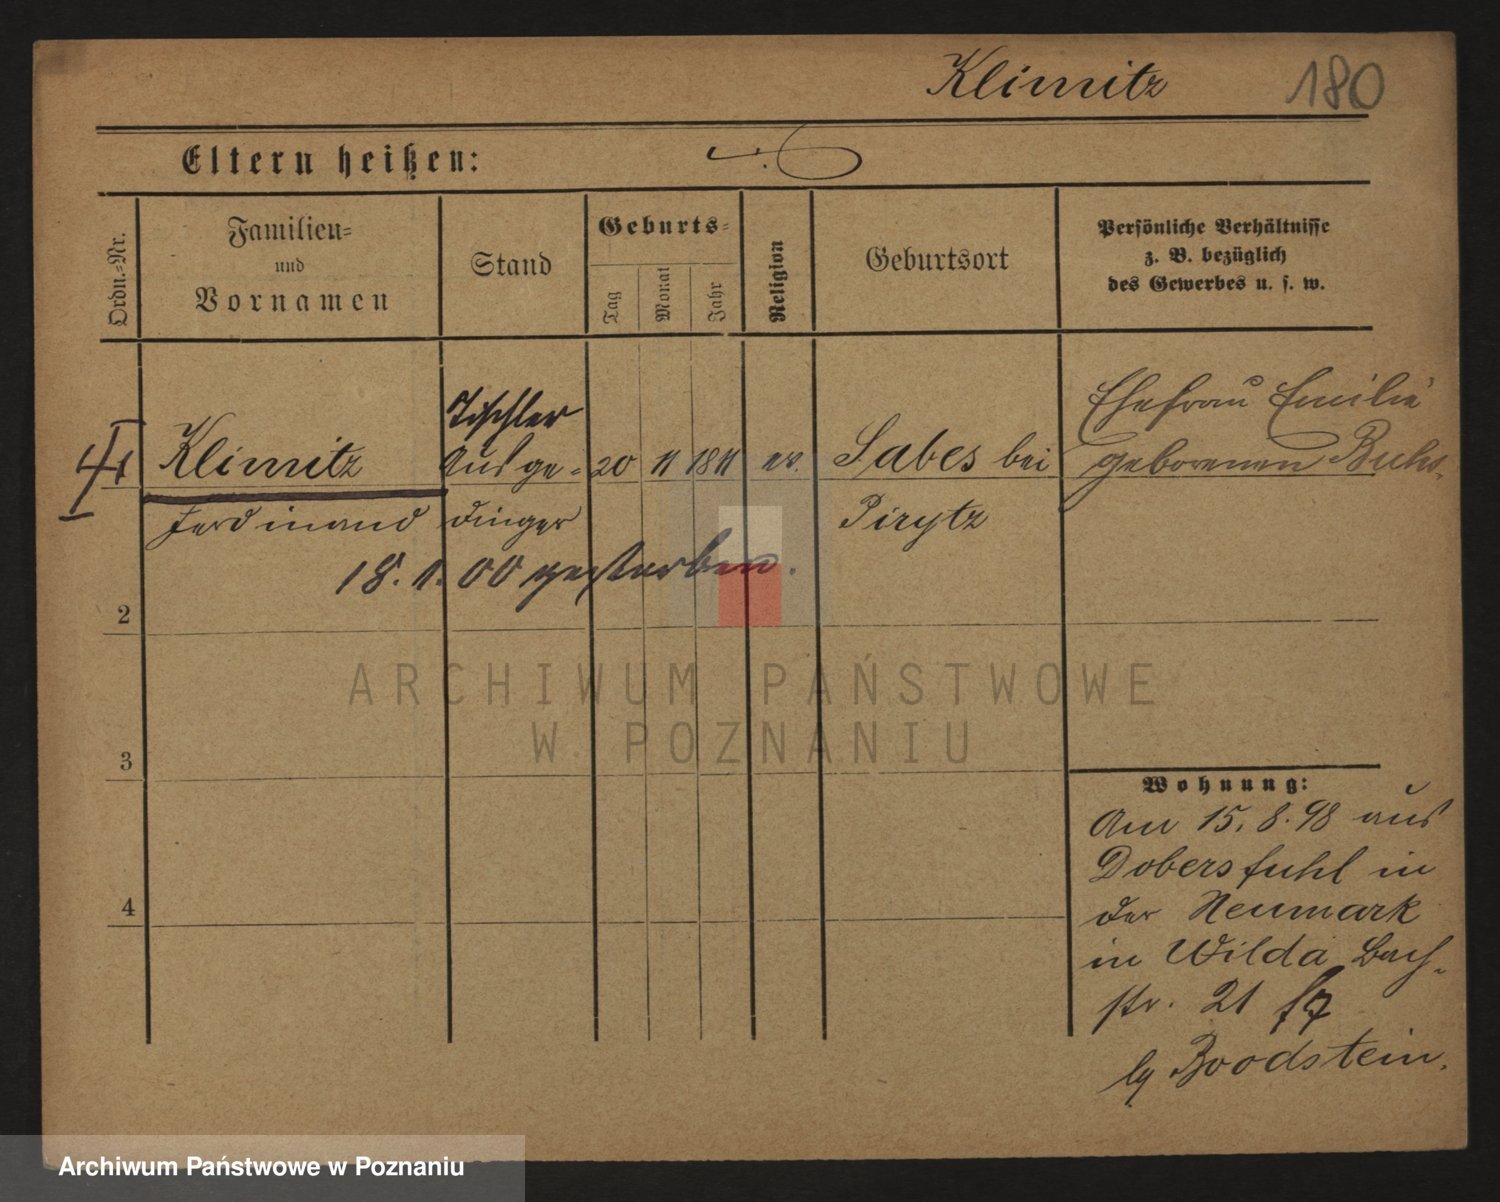 Klimitz 180
Eltern heißen:
Ordn.-Nr.
Familien-
und
Vornamen
Stand
Geburts-
Tag
Monat
Jahr
Religion
Geburtsort
Persönliche Verhältnisse
z. B. bezüglich
des Gewerbes u. s. w.
Klimitz
Ferdinand
Tischler
Ausge-
dinger
20 11 1811 ev.
Sabes bei
Pirytz
Ehefrau Emilie
geborenen
18. 1. 00 gestorben.
2
3
4
ARCHIWUM PAŃSTWOWE
W POZNANIU
Wohnung:
Am 15. 8. 98 aus
Dobersfuhl in
der Neumark
in Wilda Bach-
str. 21
Boodstein.
Archiwum Państwowe w Poznaniu